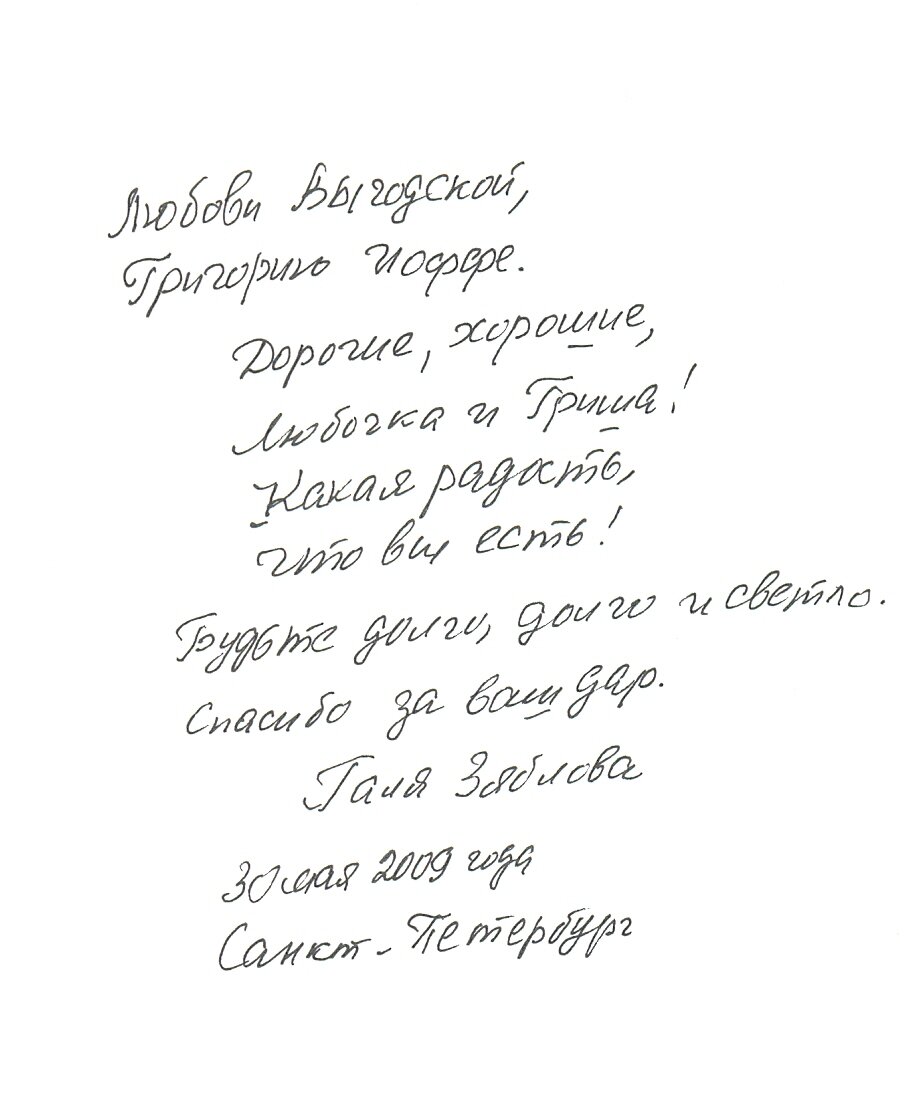 Любови Выгодской,
Григорию Иоффе.
Дорогие, хорошие,
Любочка и Гриша!
Какая радость,
что вы есть!
Будьте долго, долго и светло.
Спасибо за ваш дар.
Галя Зяблова
30 мая 2009 года
Санкт-Петербург